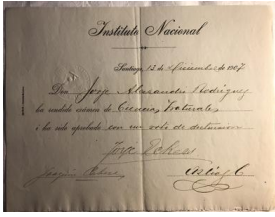 Instituto Nacional
Santiago, 15 de Diciembre de 1907
Don Jorge Alexandre Rodriguez
ha rendido examen de Ciencias Naturales
i ha sido aprobado con un voto de distincion
Jorge
Joaquin